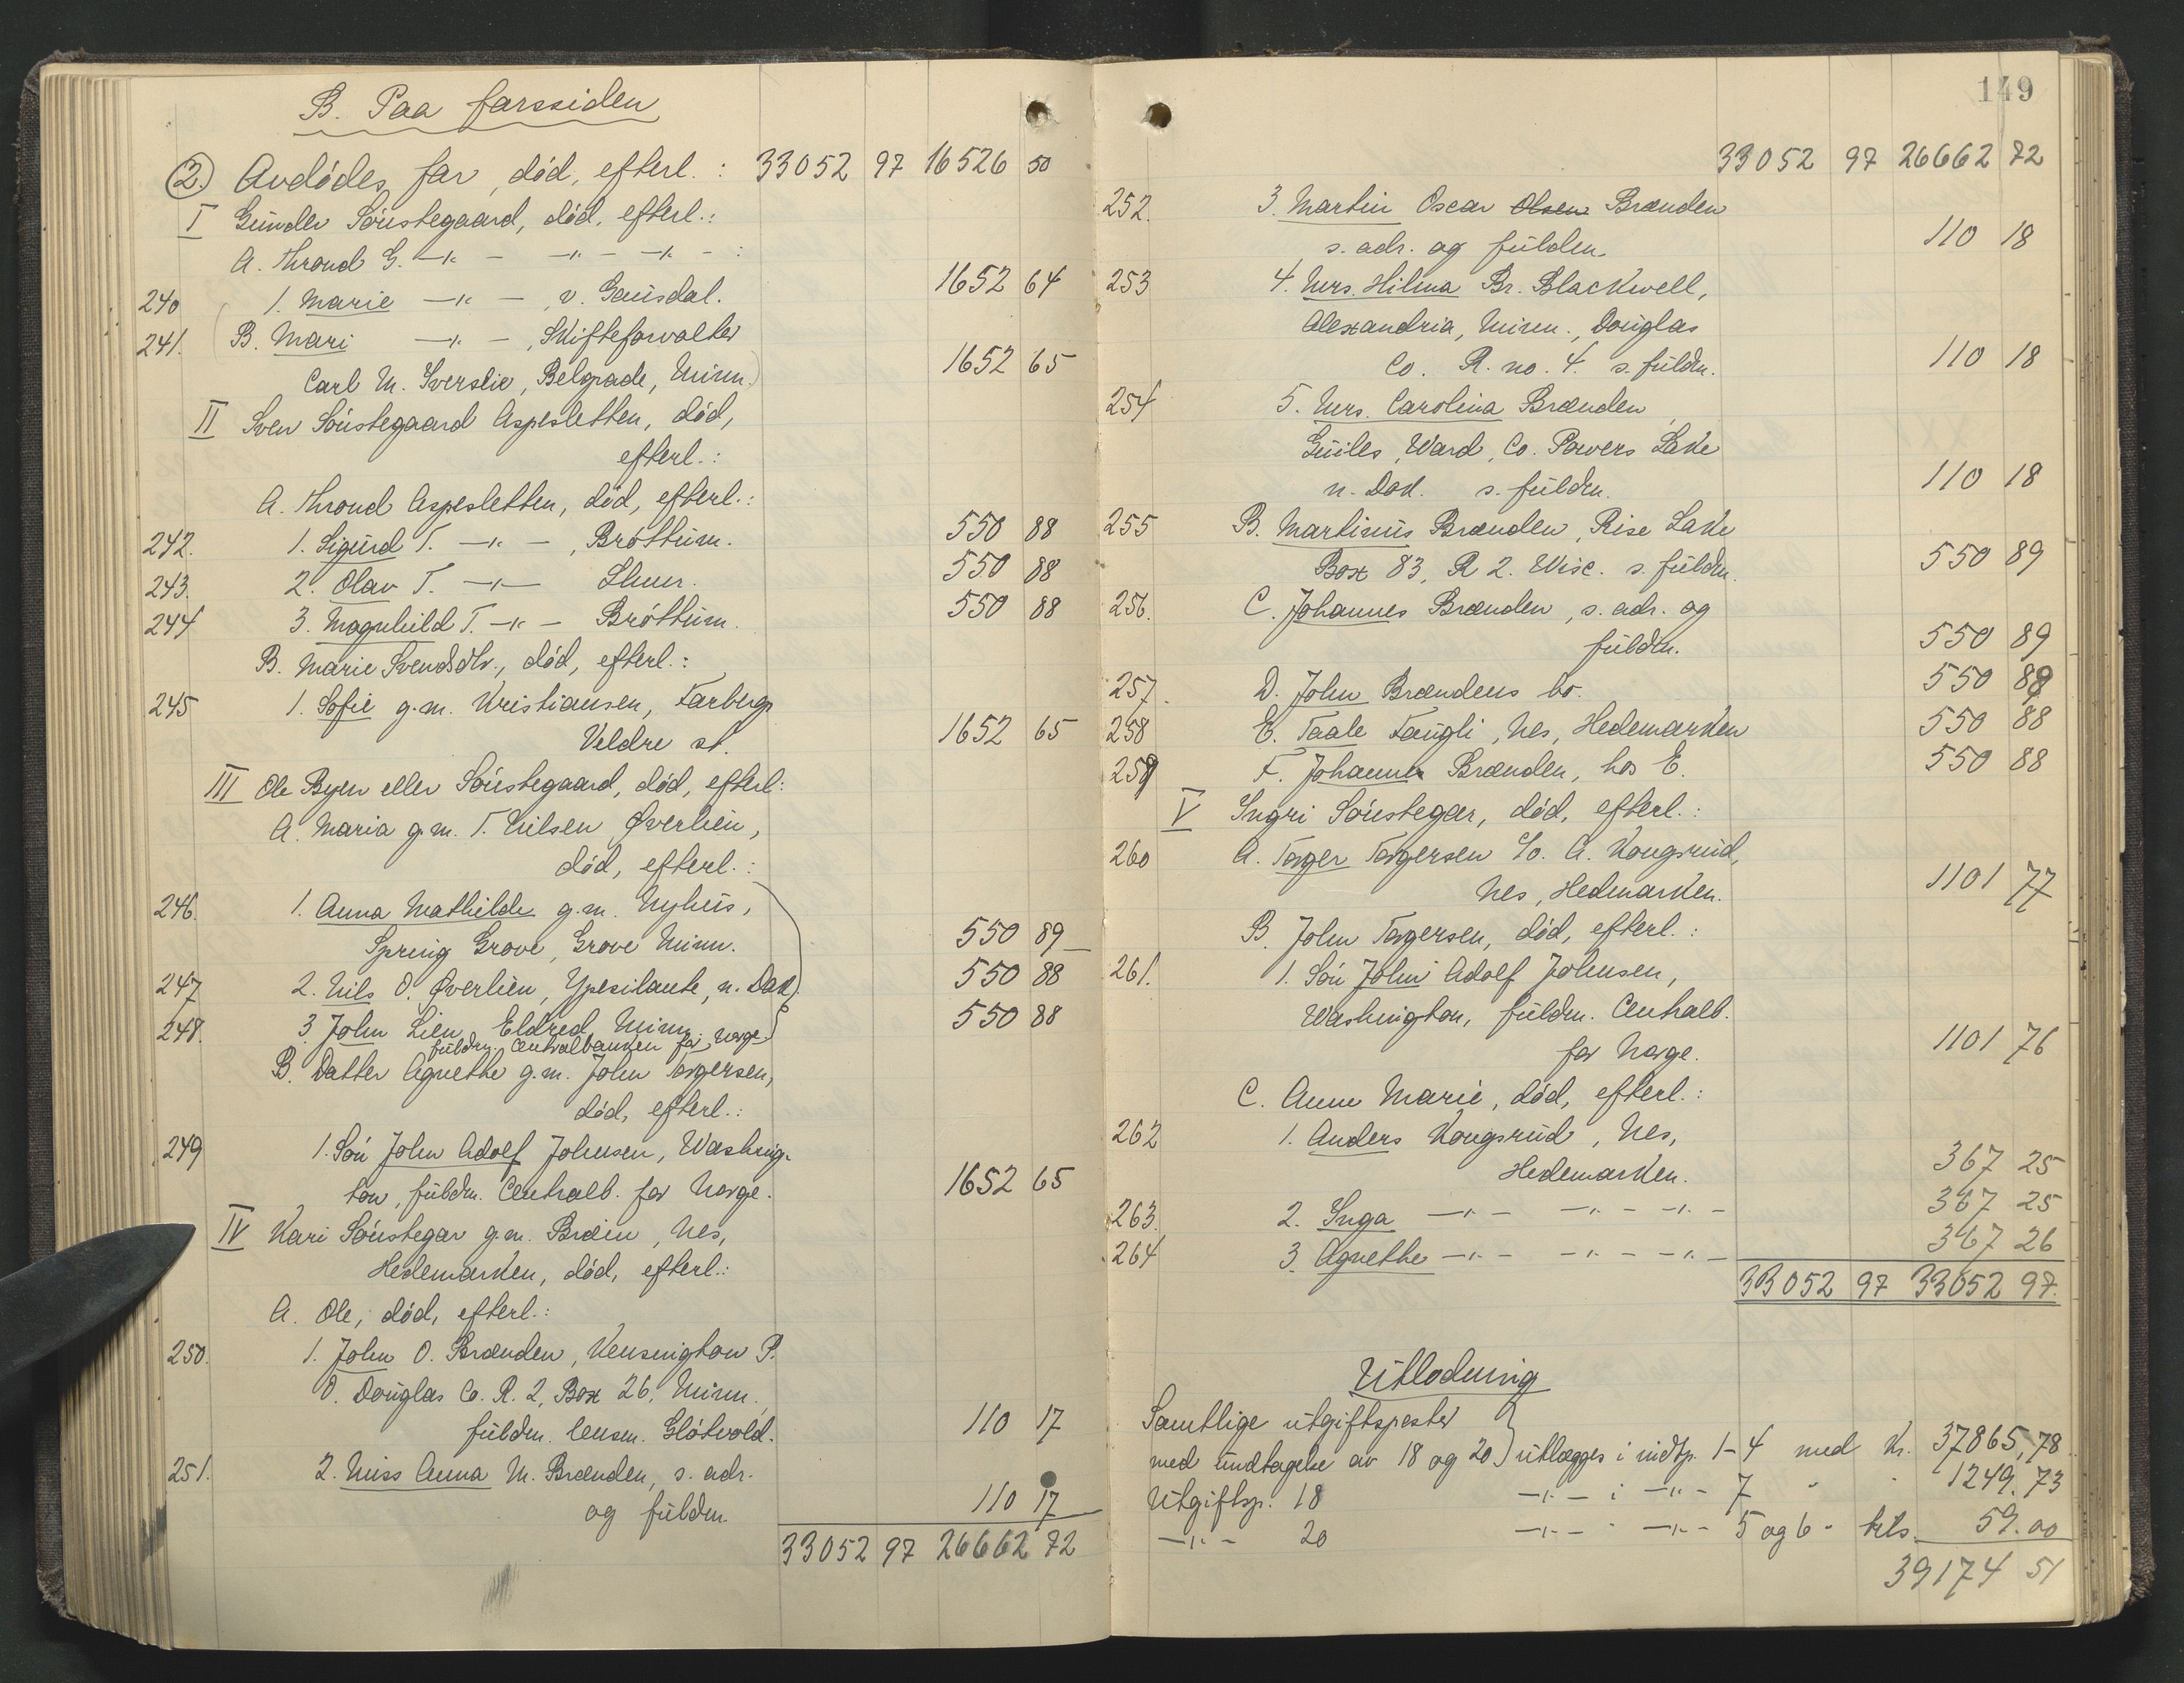 B. Paa farssiden
2. Avdødes far, død, efterl.: 33052 97 16526 50
I Gunder Söustegaard, død, efterl.:
A. Thrond G. -"- - -"- - -"- - :
240 1. Marie -"- -, v. Gausdal. 1652 64
241. B. Mari -"- -, Skifteforvalter
Carl M. Iverslie, Belgrade, Minn. 1652 65
II Sven Söustegaard Aspesletten, død,
efterl.:
A. Thrond Aspesletten, død, efterl.:
242. 1. Sigurd T. -"- -, Bröttum. 550 88
243. 2. Olav T. -"- 550 88
244 3. Magnhild T. -"- - Bröttum. 550 88
B. Marie Svendsdtr., død, efterl.:
245 1. Sofie g.m. Kristiansen, Farberg
Veldre st. 1652 65
III Ole Byen eller Söustegaard, død, efterl:
A. Maria g.m. T. Nilsen Øverlien,
død, efterl.:
246. 1. Anna Mathilde g.m. Nyhus,
Spring Grove, Grove Minn. 550 89
247 2. Nils O. Øverlien, Ypesilante, n. Dak. 550 88
248. 3 John Lien, Eldred, Minn. 550 88
fuldm. Centralbanken for Norge.
B. Datter Agnethe g.m. John Torgersen,
død, efterl.:
249 1. Sön John Adolf Johnsen, Washing-
ton, fuldm. Centralb. for Norge. 1652 65
IV Kari Söustegar g.m. Bræin, Nes,
Hedemarken, død, efterl.:
A. Ole, død, efterl.:
250. 1. John O. Brænden, Kensington P.
O. Douglas Co. R. 2, Box 26, Minn.,
fuldm. lensm. Glötvold. 110 17
251. 2. Miss Anna M. Brænden, s. adr.
og fuldm. 110 17
33052 97 26662 72
149
33052 97 26662 72
252. 3. Martin Oscar Olsen Brænden
s. adr. og fuldm. 110 18
253 4. Mrs. Hilma Br. Blackwell,
Alexandria, Minn., Douglas
Co. R. no. 4. s. fuldm. 110 18
254 5. Mrs. Carolina Brænden,
Guiles, Ward, Co. Powers Lake
n. Dak. s. fuldm. 110 18
255 B. Martinus Brænden, Rise Lake
Box 83, R 2. Wisc. s. fuldm. 550 89
256. C. Johannes Brænden, s. adr. og
fuldm. 550 89
257. D. John Brændens bo. 550 89
258 E. Taale Faugli, Nes, Hedemarken 550 88
259 F. Johanne Brænden, hos E. 550 88
V Ingri Söustegar, død, efterl.:
260 A. Torger Torgersen c/o. A. Kongsrud,
Nes, Hedemarken. 1101 77
B. John Torgersen, død, efterl.:
261. 1. Sön John Adolf Johnsen,
Washington, fuldm. Centralb.
for Norge. 1101 76
C. Anne Marie, død, efterl.:
262 1. Anders Kongsrud, Nes,
Hedemarken. 367 25
263. 2. Inga -"- - -"- - -"- - 367 25
264 3. Agnethe -"- - -"- - -"- - 367 26
33052 97 33052 97.
Utlodning
Samtlige utgiftsposter
med undtagelse av 18 og 20 } utlægges i indtp. 1-4 med Kr. 37865,78
Utgiftsp. 18 -"- i -"- 7 " 1249.73
-"- 20 -"- " -"- 5 og 6 - tils. 59.00
39174 51